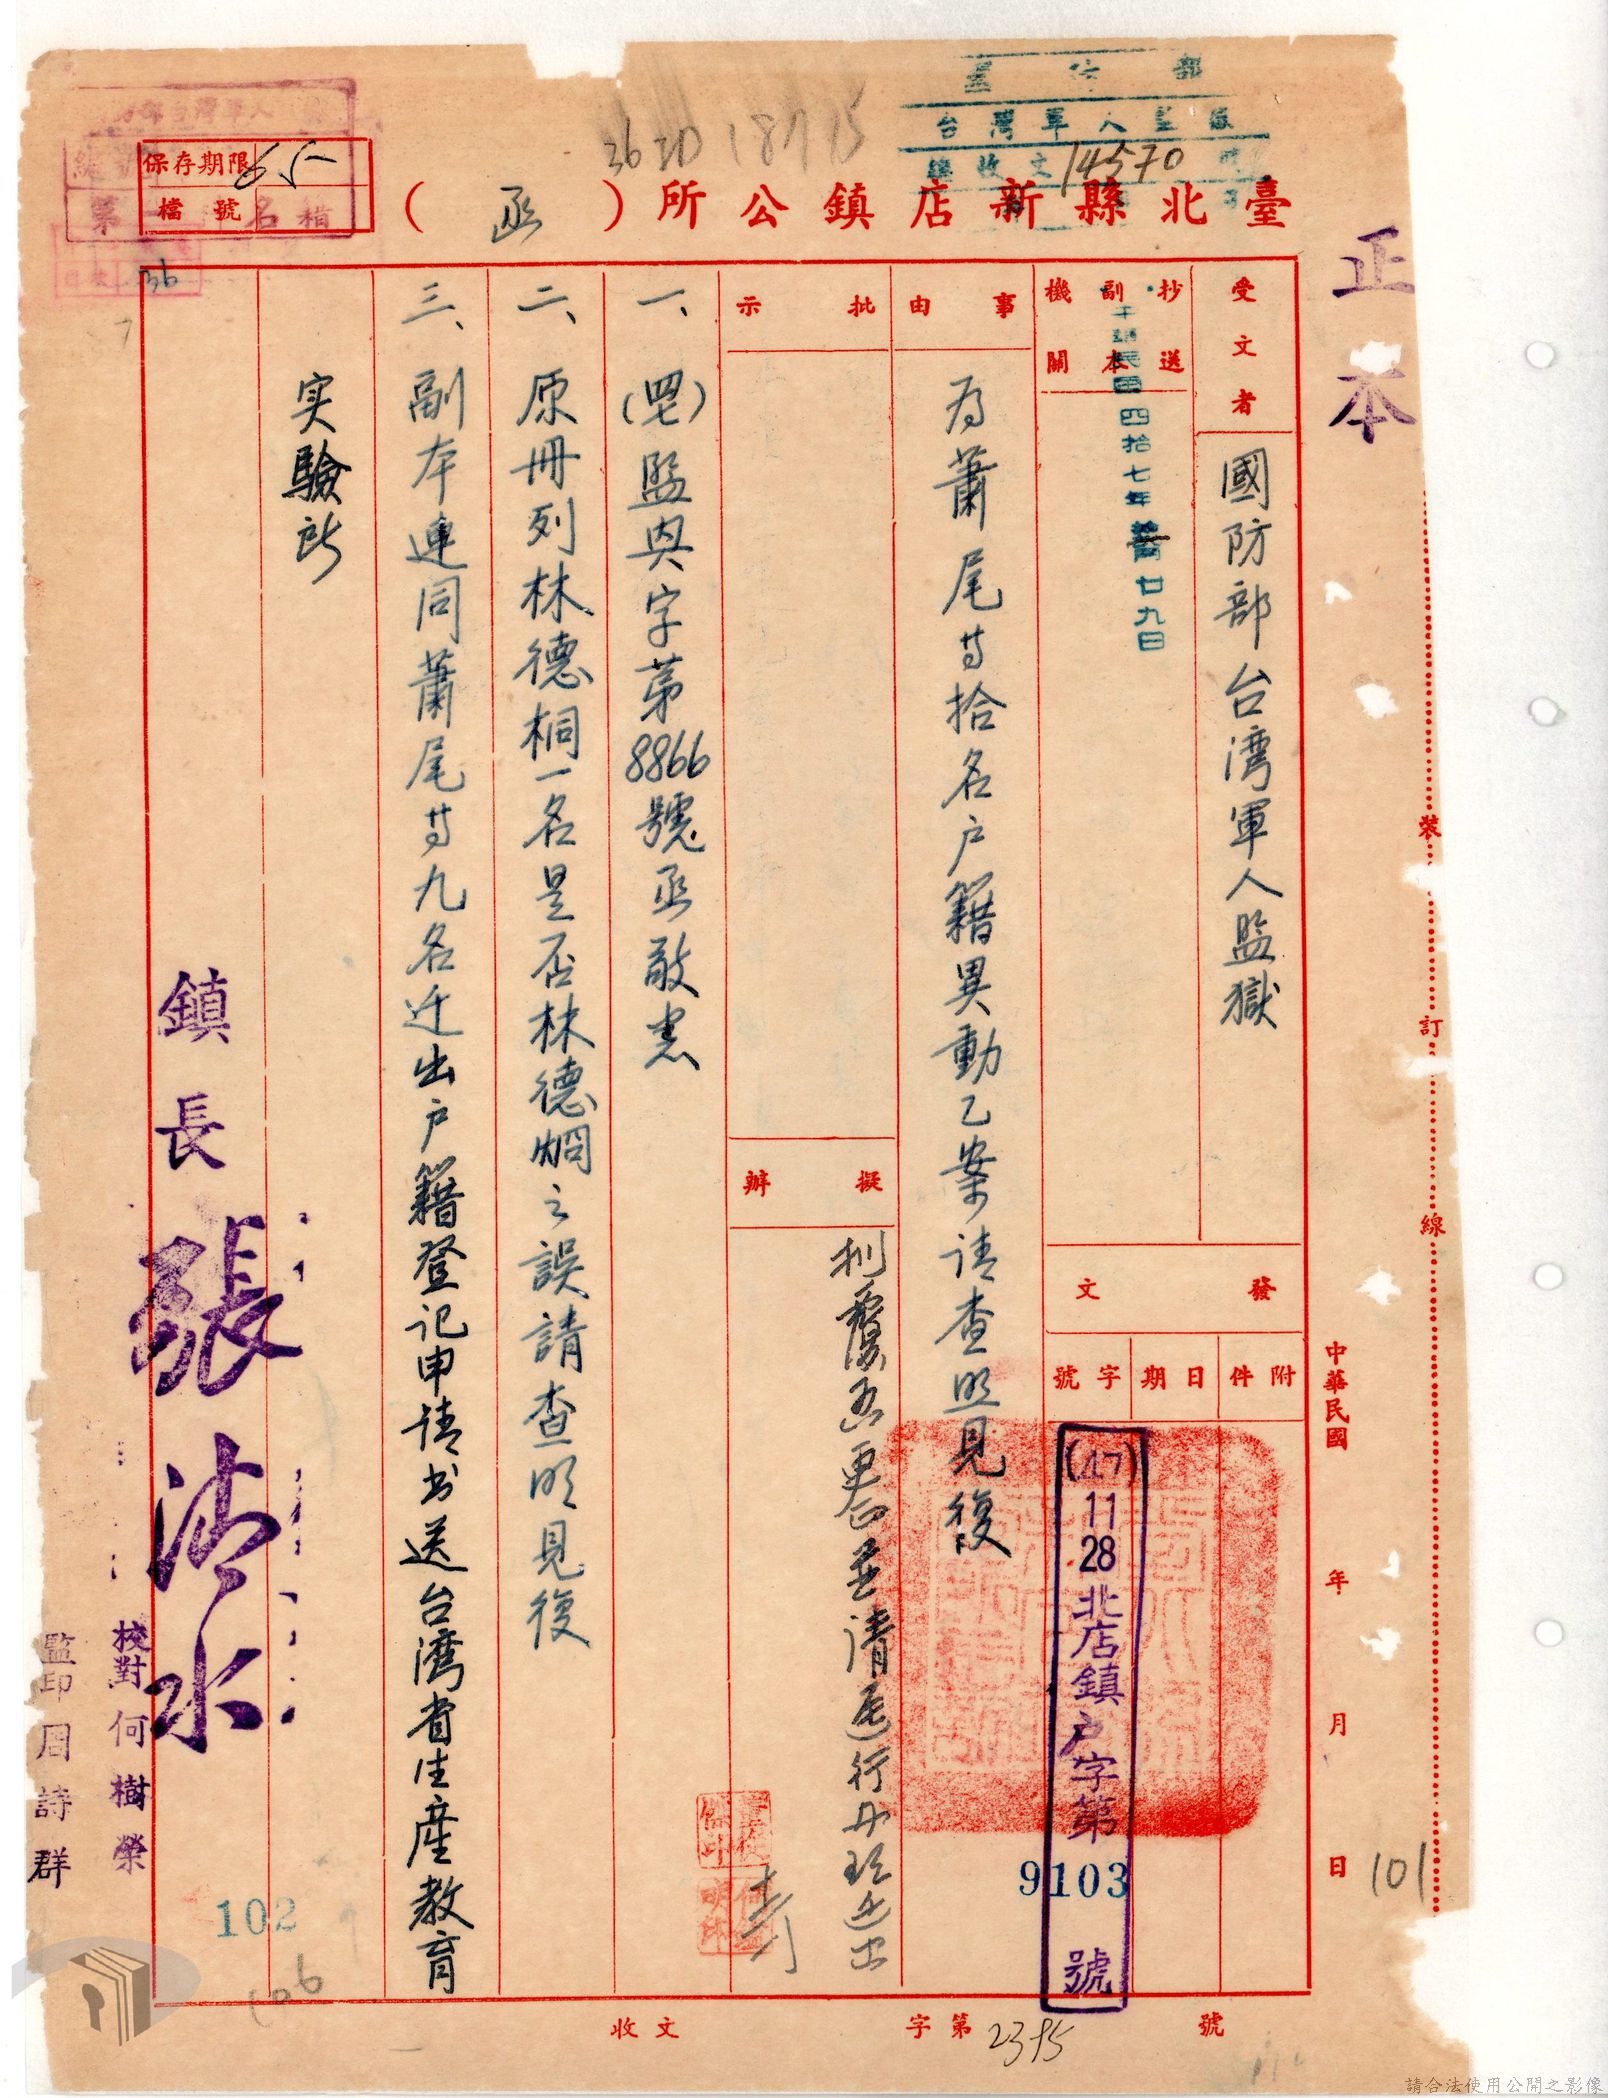 正本
臺北縣新店鎮公所（函）
保存期限 65
檔號
36
14570
台灣軍人監獄
收文
受文者
國防部台湾軍人監獄
抄送副本機關
中華民國四拾七年 廿九日
事由
為蕭尾等拾名户籍異動乙案请查照見復
批示
擬辦
一、(四七)監典字苐8866號函敬悉
二、原冊列林德桐一名是否林德烱之誤請查明見復
三、副本連同蕭尾等九名迁出户籍登记申请书送台湾省生產教育
实驗所
鎮長張沛水
校對何樹榮
監印周詩群
發文
附件
日期
字號
(47) 11 28 北店鎮户字第9103號
中華民國 年 月 日
裝訂線
101
102
106
收文 字第 2395 號
請合法使用公開之影像